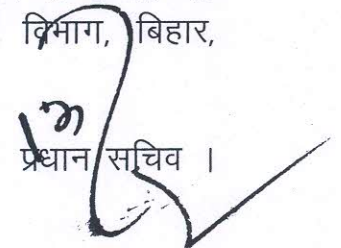 विभाग, बिहार,
प्रधान सचिव ।